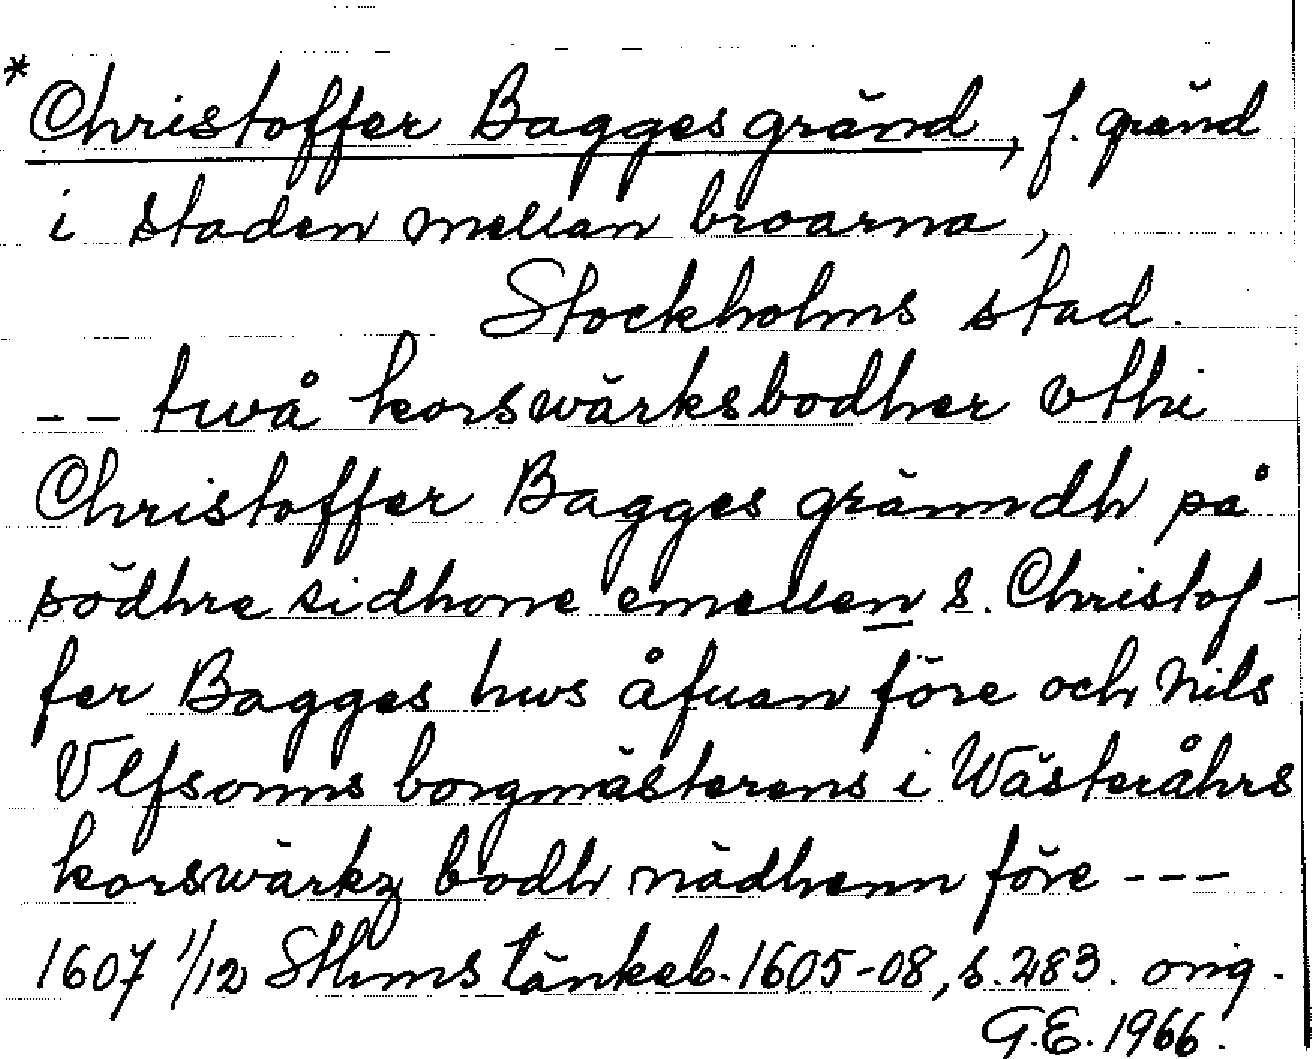 * Christoffer Bagges gränd, f. gränd
i staden mellan broarna,
Stockholms stad.
-- twå korswärksbodher vthi
Christoffer Bagges gränndh på
södhre sidhone emellen s. Christof-
fer Bagges hws åfuan före och Nils
Vlfsonns borgmästerens i Wästeråhrs
korswärkz bodh nädhenn före ---
1607 1/12 Sthms tänkeb. 1605-08, s. 283. orig.
G.E. 1966.